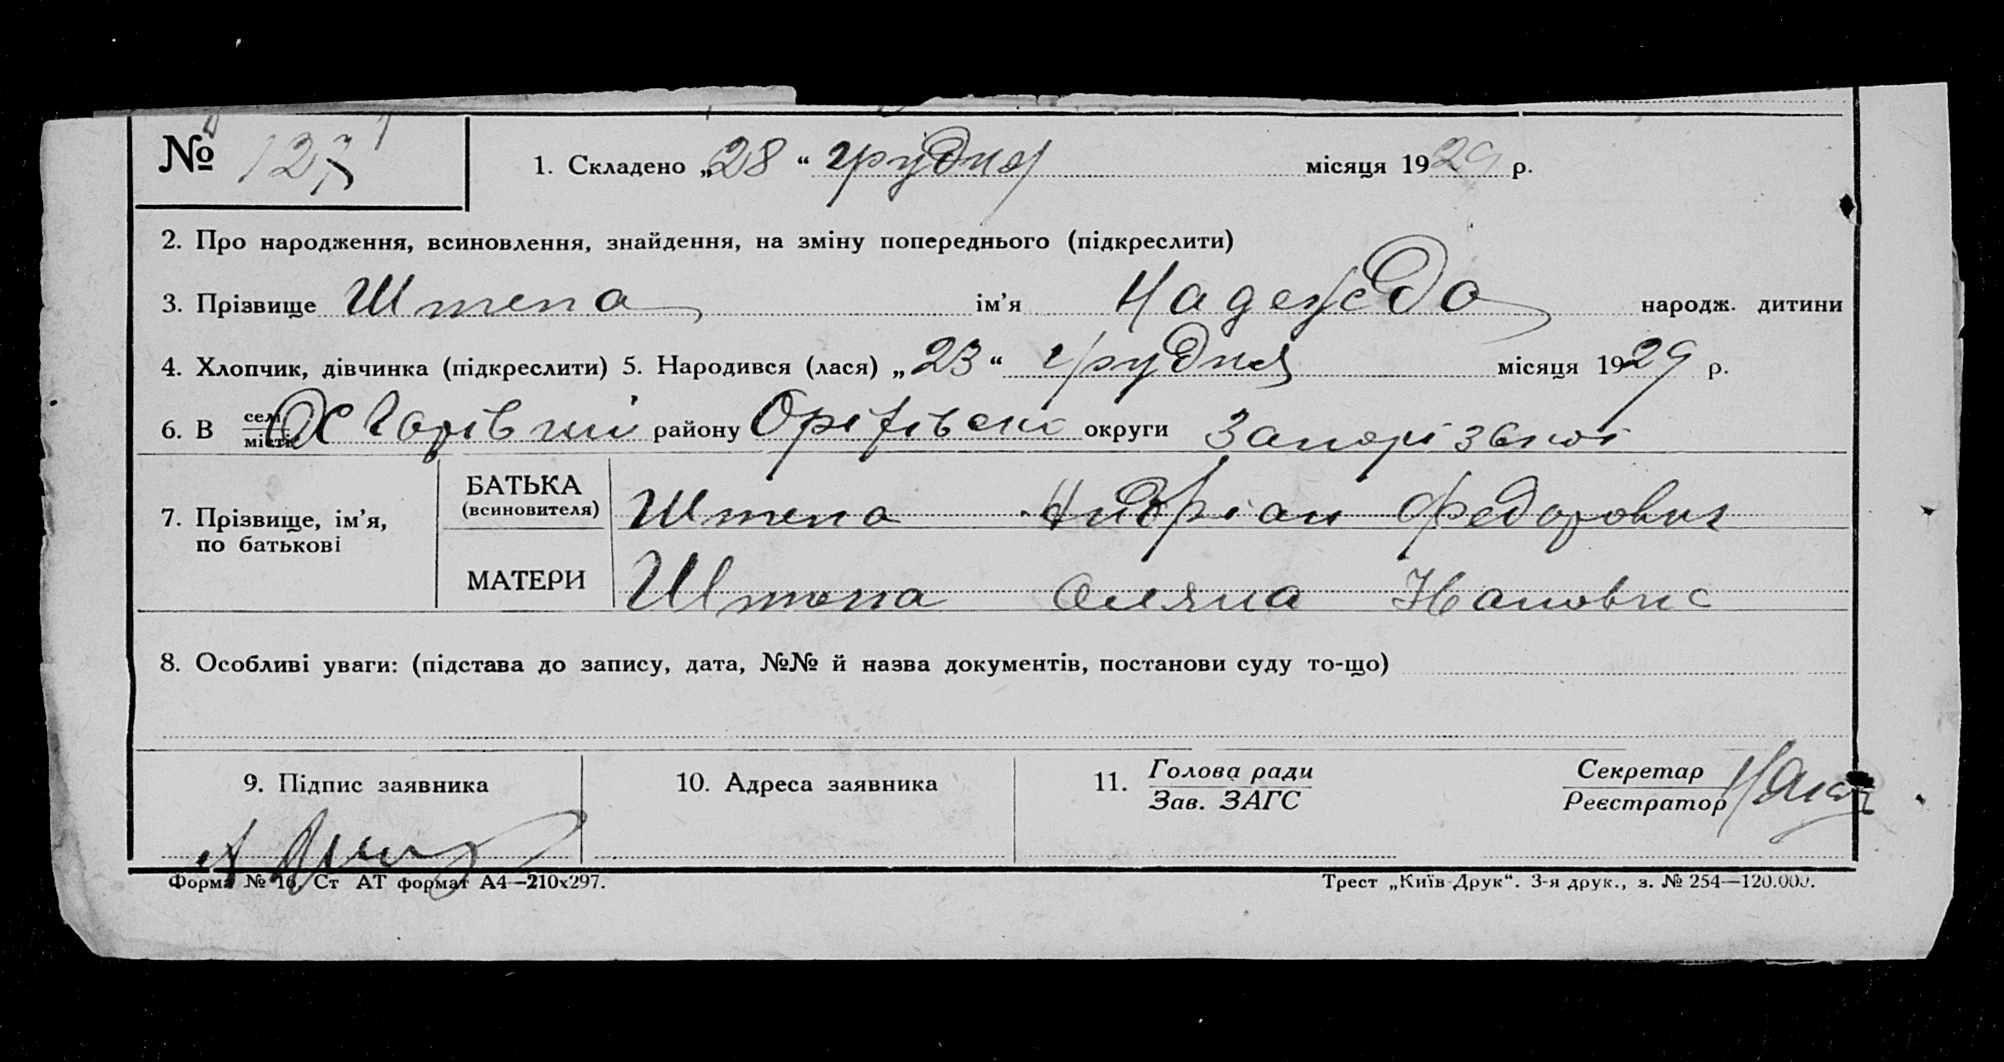 № 127
1. Складено „28“ грудня місяця 1929 р.
2. Про народження, всиновлення, знайдення, на зміну попереднього (підкреслити)
3. Прізвище Штепа ім’я Надежда народж. дитини
4. Хлопчик, дівчинка (підкреслити) 5. Народився (лася) „23“ грудня місяця 1929 р.
6. В селі місті району округи Запорізької
7. Прізвище, ім’я, по батькові
БАТЬКА (всиновителя) Штепа Андріан Федорович
МАТЕРИ Штепа
8. Особливі уваги: (підстава до запису, дата, №№ й назва документів, постанови суду то-що)
9. Підпис заявника
10. Адреса заявника
11. Голова ради Зав. ЗАГС
Секретар Реєстратор
Форма № 16, Ст АТ формат А4—210х297.
Трест „Київ-Друк“. 3-я друк., з. № 254—120.000.